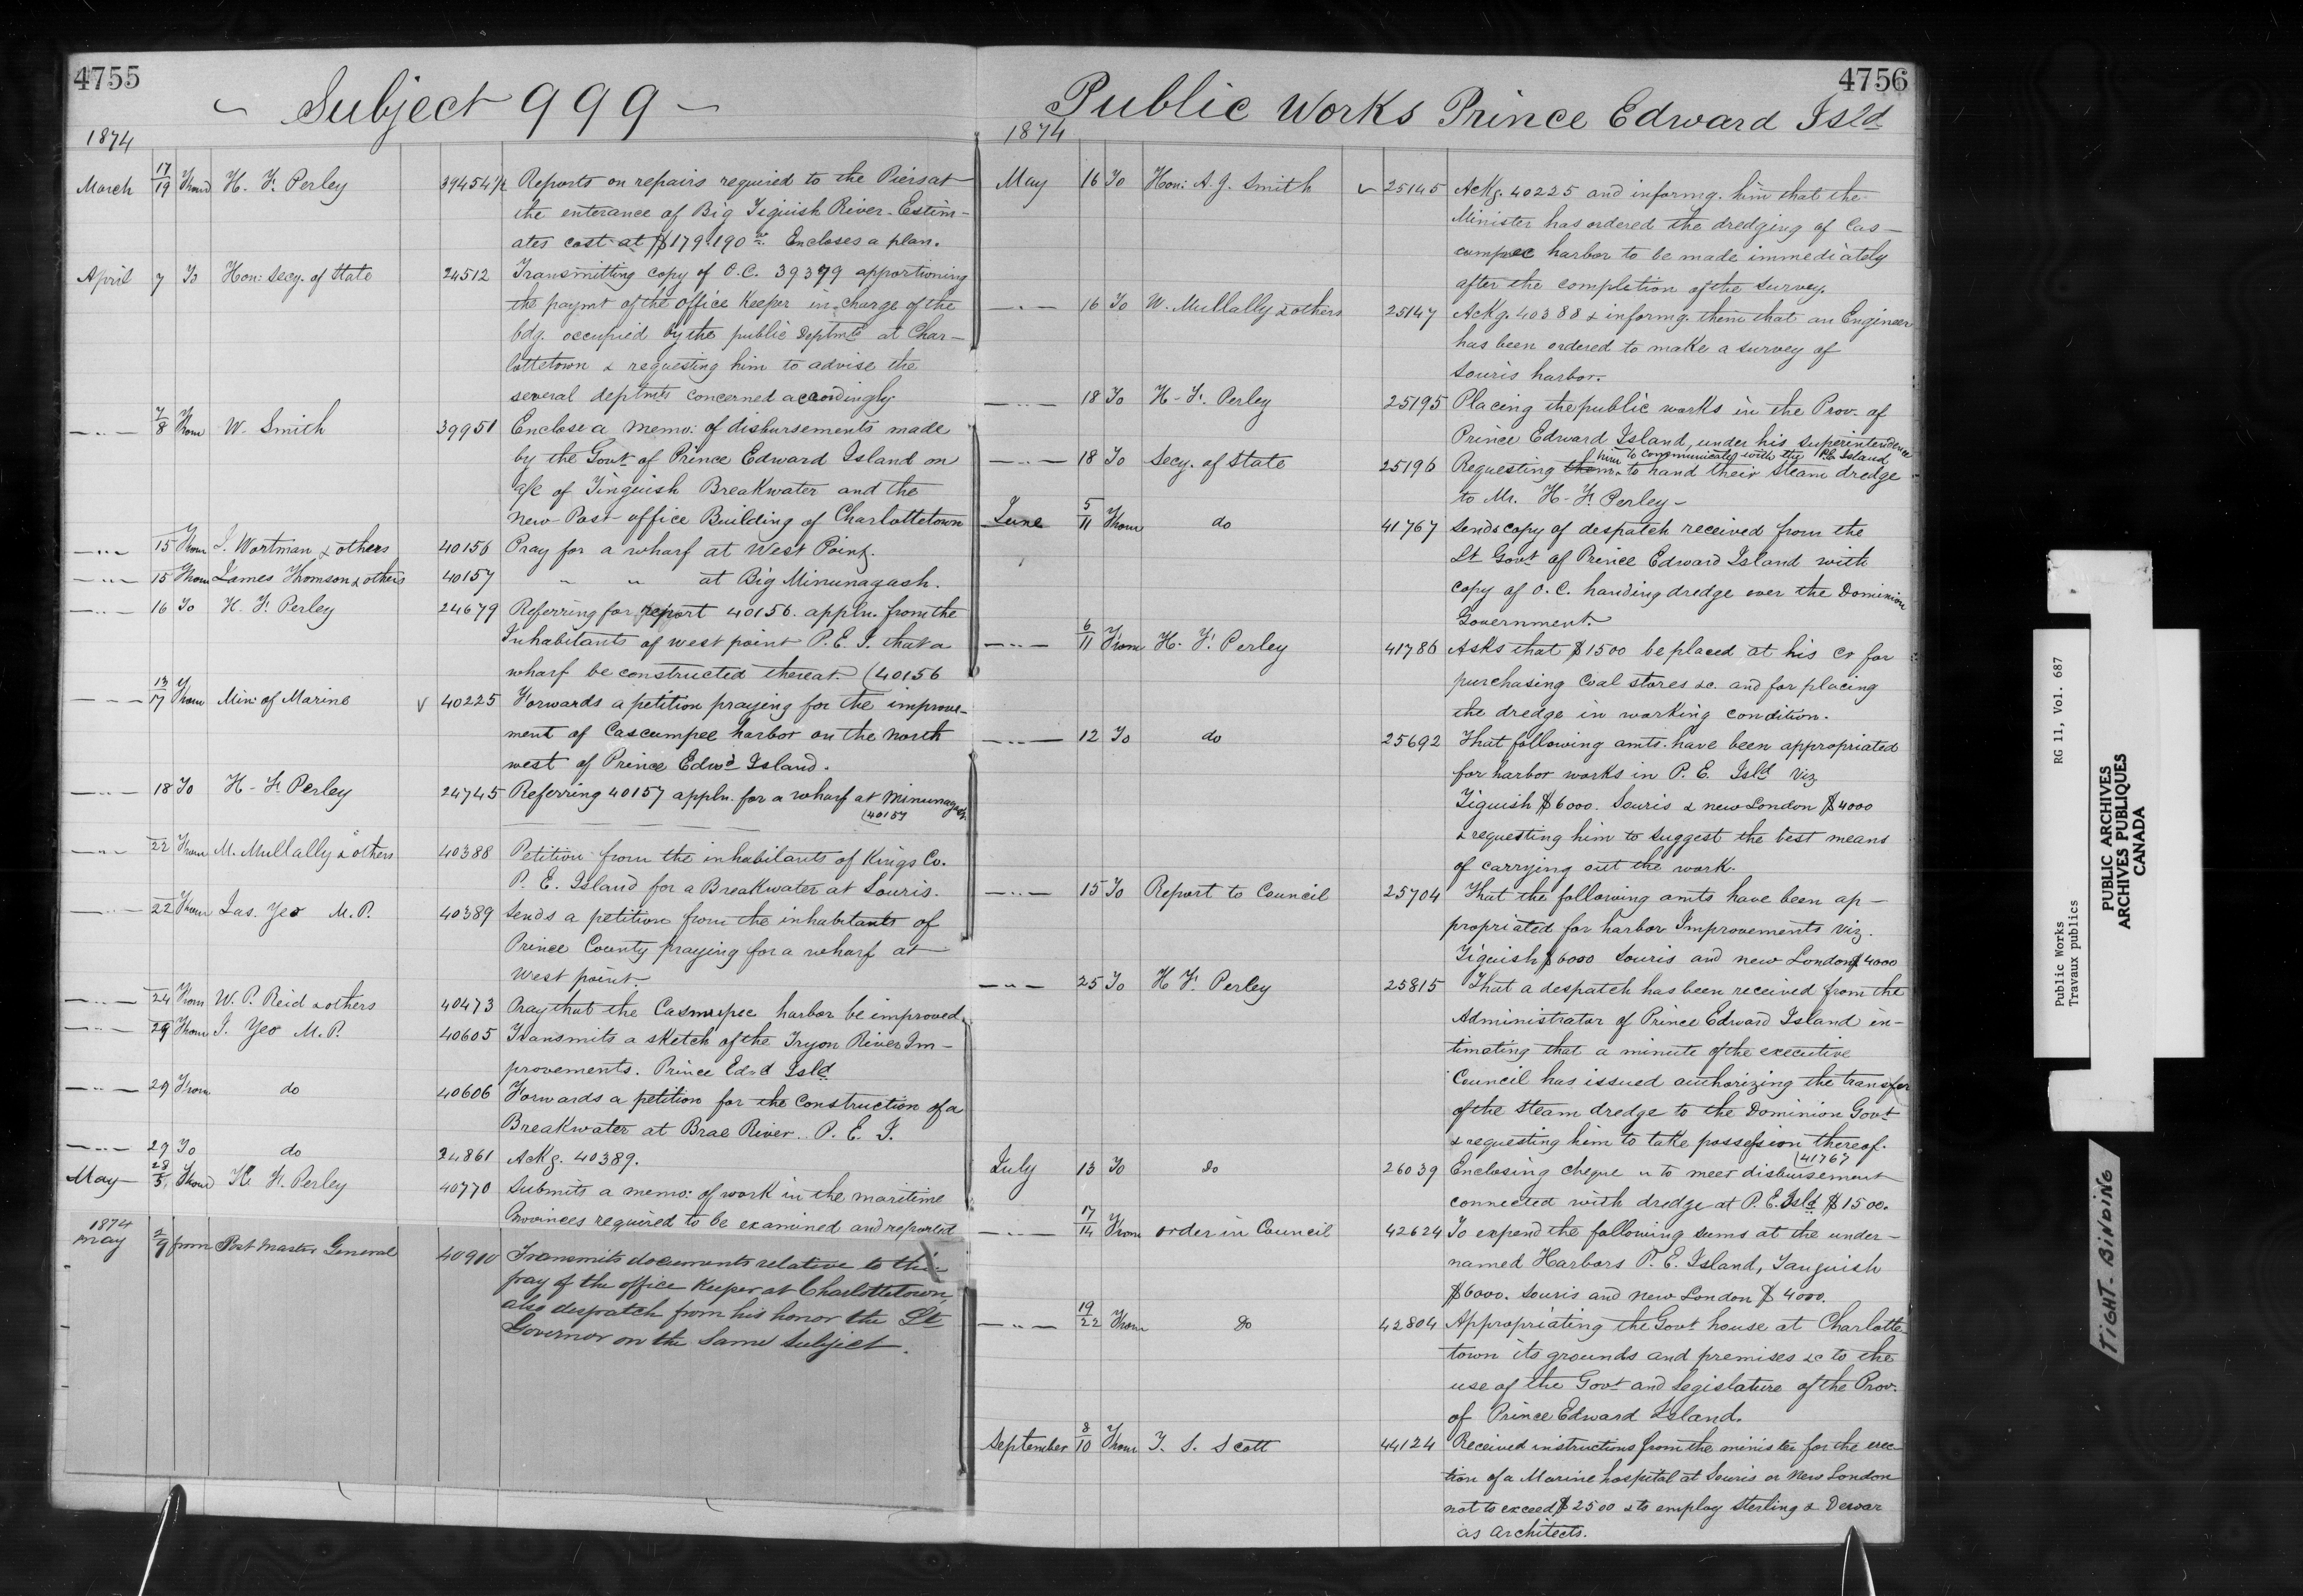 4755
Subject 999
1874
March 17/19 From H. F. Perley 39454 1/2 Reports on repairs required to the Piers at
the enterance of Big Tignish River. Estim-
ates cost at $179.190 Encloses a plan.
April 7 To Hon: Secy. of State 24512 Transmitting copy of O.C. 39379 apportioning
the paymt of the office Keeper in charge of the
bdg. occupied by the public Deptmts at Char-
lottetown & requesting him to advise the
several deptmts concerned accordingly
7/8 From W. Smith 39951 Enclose a memo: of disbursements made
by the Govt of Prince Edward Island on
a/c of Tinguish Breakwater and the
new Post office Building of Charlottetown
15 From J. Wortman & others 40156 Pray for a wharf at West Point.
15 From James Thomson & others 40157 " " at Big Minunagash.
16 To H. F. Perley 24679 Referring for report 40156. appln. from the
Inhabitants of west point P.E.I. that a
wharf be constructed thereat (40156
13/17 From Min: of Marine √ 40225 Forwards a petition praying for the improve-
ment of Cascumpee harbor on the north
west of Prince Edwd Island.
18 To H-F. Perley 24745 Referring 40157 appln. for a wharf at Minunagash
(40157
22 From M. Mullally & others 40388 Petition from the inhabitants of Kings Co.
P. E. Island for a Breakwater at Souris.
22 From Jas. Yeo M.P. 40389 Sends a petition from the inhabitants of
Prince County praying for a wharf at
West point.
24 From W. P. Reid & others 40473 Pray that the Casmupee harbor be improved
29 From J. Yeo M.P. 40605 Transmits a sketch of the Tryon River Im-
provements. Prince Edwd Isld
29 From do 40606 Forwards a petition for the Construction of a
Breakwater at Brae River. P. E. I.
29 To do 24861 Ackg. 40389.
May 28/5 From H. F. Perley 40770 Submits a memo: of work in the maritime
Provinces required to be examined and reported
1874
May 2/9 from Post Master General 40910 Transmits documents relative to the
pay of the office Keeper at Charlottetown,
also despatch from his honor the Lt
Governor on the same subject.
4756
Public Works Prince Edward Isld
1874
May 16 To Hon: A. J. Smith √ 25145 Ackg. 40225 and informg. him that the
Minister has ordered the dredging of Cas-
cumpec harbor to be made immediately
after the completion of the survey.
16 To W. Mullally & others 25147 Ackg. 40388 & informg. them that an Engineer
has been ordered to make a survey of
Souris harbor.
18 To H-F. Perley 25195 Placing the public works in the Prov. of
Prince Edward Island, under his superintendence
18 To Secy. of State 25196 Requesting them him to communicate with the P.E. Island to hand their steam dredge
to Mr. H-F. Perley-
June 5/11 From do 41767 Sends copy of despatch received from the
Lt Govt of Prince Edward Island with
copy of O. C. handing dredge over the Dominion
Government.
6/11 From H-F. Perley 41786 Asks that $1500 be placed at his cr for
purchasing Coal stores &c. and for placing
the dredge in working condition.
12 To do 25692 That following amts. have been appropriated
for harbor works in P. E. Isld viz
Tignish $6000. Souris & new London $4000
& requesting him to suggest the best means
of carrying out the work.
15 To Report to Council 25704 That the following amts have been ap-
propriated for harbor Improvements viz.
Tignish $6000 Souris and new London $4000
25 To H F. Perley 25815 That a despatch has been received from the
Administrator of Prince Edward Island in-
timating that a minute of the executive
Council has issued authorizing the transfer
of the steam dredge to the Dominion Govt
& requesting him to take possession thereof.
(41767
July 13 To do 26039 Enclosing cheque to meet disbursement
connected with dredge at P. E. Isld $1500.
17/14 From order in Council 42624 To expend the following sums at the under-
named Harbors P. E. Island, Tanguish
$6000. Souris and new London $4000.
19/22 From do 42804 Appropriating the Govt house at Charlotte
town its grounds and premises &c to the
use of the Govt and Legislature of the Prov.
of Prince Edward Island.
September 8/10 From T. S. Scott 44124 Received instructions from the minister for the erec
tion of a Marine hospital at Souris or New London
not to exceed $2500 & to employ Sterling & Dewar
as Architects.
Public Works RG 11, Vol. 687
Travaux publics
PUBLIC ARCHIVES
ARCHIVES PUBLIQUES
CANADA
TIGHT BINDING